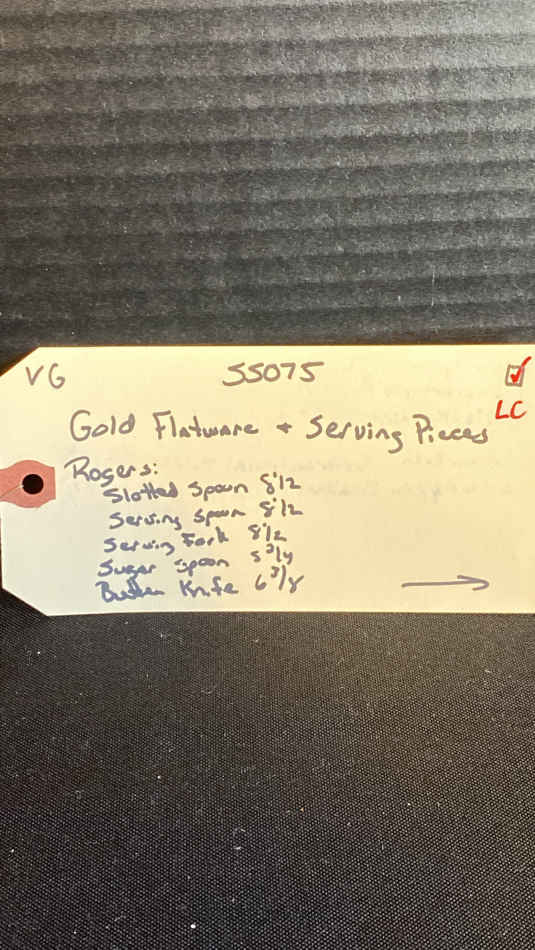 VG SS075 ☑
LC
Gold Flatware + Serving Pieces
Rogers:
Slotted Spoon 8 1/2
Serving Spoon 8 1/2
Serving Fork 8 1/2
Sugar Spoon 5 3/4
Butter Knife 6 3/8 →